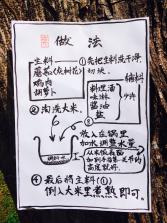 做法
生料
①先把生料洗干净,
切块。
蘑菇(灰树花)
鸡肉
胡萝卜
辅料
料理酒
味淋
酱油
盐
少许
②淘洗大米。
③放入在锅里
加水调整水量
④最后将生料(①)
倒入大米里煮熟即可。